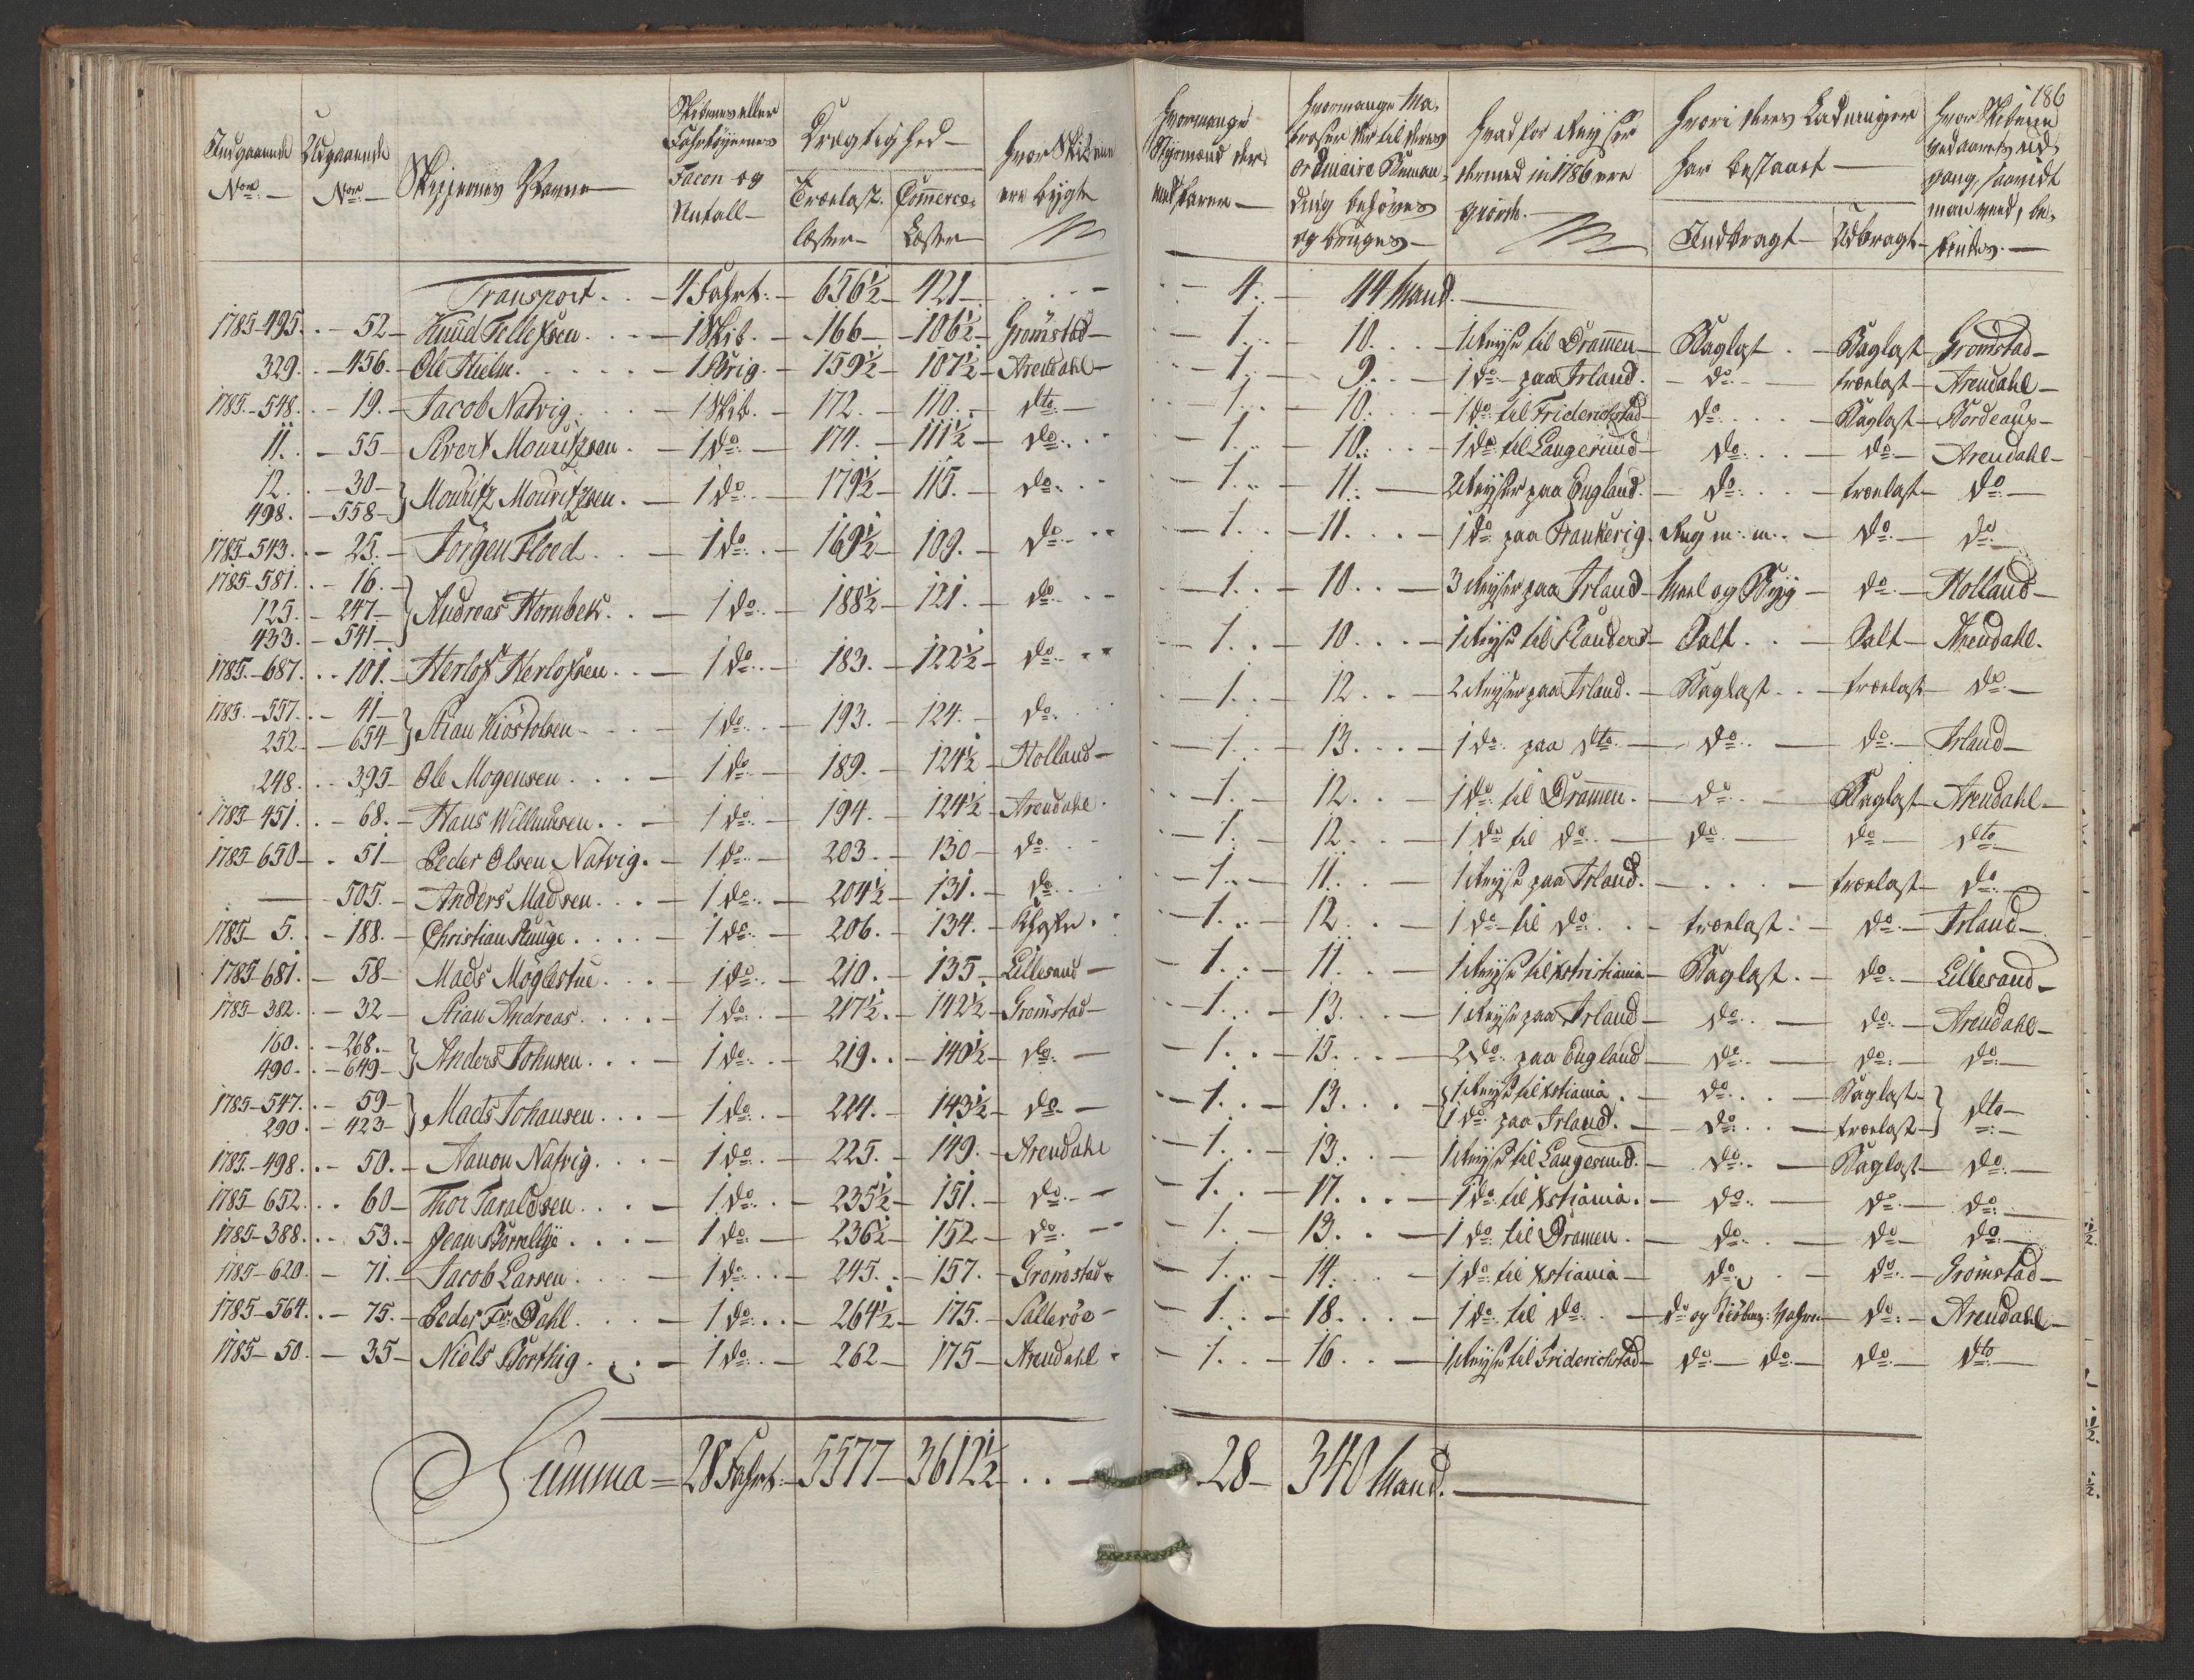 186
Indgaaende Nom: — | Udgaaende Nom: — | Skippernes Navne — | Skibenes eller Fahrtöyernes Facon og Antall — | Drægtighed — Trælast. Læster — | Commerce: Læster — | Hvor Skibene ere bygte | Hvormange Styrmænd der: med farer — | Hvormange Ma: troser der til deres ordinaire Beman: ding behöves og bruges — | Hvad for Reyser dermed in 1786 ere giorde. — | Hvori deres Ladninger har bestaaet — Indbragt — | Udbragt — | Hvor Skibene ved aarets ud: gang, saavidt man veed, be: findes. —
Transport. . . — 4 Fahrt: — 656½ — 421 — . . — 4. . — 44 Mand. —
1785-495. . — 52 — Knud Tellefsen. . . . — 1 Skib. — 166 — 106½ — Grömstad — 1. . . 10. . . — 1 Reyse til Drammen — Baglast . — Baglast — Grömstad —
329. . — 456. — Ole Hielm. . . . . — 1 Brig. — 159½ — 107½ — Arendahl — 1. . . 9. . . — 1 do: paa Irland. — do: — — trælast — Arendahl —
1785.-548. . — 19. — Jacob Natvig. . . — 1 Skib. — 172. — 110. . dto: — 1. . . 10. . . — 1 do: til Friderichstad — do: . . . — Baglast — Bordeaux —
11. . — 55 — Evert Mouritzsen . — 1 do: — 174. — 111½ — do: . . — 1. . 10. . . — 1 do: til Langesund — do: . . — do: — Arendahl —
12. . — 30 —
498. — 558 — } Mouritz Mouritzsen. — 1 do: — 179½ — 115. — do: . . — 1. . 11. . — 2 Reyser paa England. — do: . . . — trælast — do: —
1785-543. . — 25. — Jörgen Floed. . . — 1 do: . — 169½ — 109. — do: . . — 1. . — 11. . . — 1 do: paa Frankerig. Rug m: m. . — do: — do: —
1785-581. . — 16. —
125. — 247 —
433. — 541 — } Andreas Hornbek. . — 1 do: . — 188½ — 121. — do: . — — 1. . — 10. . . — 3 Reyser paa Irland — Meel og Byg — do: — Holland —
1785.-687. . . 101. — Herlof Herlofsen. . — 1 do: . — 183. — 122½ — do: . . — 1. . — 10. . . — 1 Reyse til Flanders — Salt. . — Salt — Arendahl.
1785.-557. . — 41 —
252. — 654 — } Stian Kiöstolsen . . . — 1 do: . — 193. — 124. — do: . . — 1. . — 12. . — 2 Reyser paa Irland. — Baglast . . — trælast — do: —
248. . . 395 — Ole Mogensen. . . . — 1 do: — 189. — 124½ — Holland — 1. . — 13. . . — 1 do: paa dto: — do: . — do: — Irland —
1785-451. . — 68. — Hans Willumsen. . . — 1 do: . — 194. — 124½ — Arendahl. — 1. . — 12. . — 1 do: til Dramen. — do: . — Baglast — Arendahl —
1785-650 — . 51 — Peder Olsen Natvig. — 1 do: — 203. — 130 — do: . . — 1. — 12. . — 1 do: til do: . — do: — do: — dto:
— 505. — Anders Madsen. . . — 1 do: . — 204½ — 131. — do: . . — 1. . — 11. . . — 1 Reyse paa Irland. — . . . — trælast — do: —
1785- 5. . — 188. — Christian Runge. . . . — 1 do: . — 206. — 134. — . . — 1. . — 12. . — 1 do: til do: . . — trælast. — do: — Irland —
1785-681. — 58 — Mads Möglestue. . . — 1 do: . — 210. — 135. — Lillesand — 1. . — 11. . — 1 Reyse til Xstistiania — Baglast. — do: — Lillesand —
1785-382. . — 32 — Stian Andreas. . . . — 1 do: . — 217½. — 142½ — Grömstad — 1. . — 13. . . — 1 Reyse paa Irland — do: . — do: — Arendahl —
160. . — 268. —
490. . — 649 — } Anders Johnsen. . . — 1 do: . — 219. . — 140½ — do: — 1. . — 15. . . — 2 do: paa England — do: . — do: — do:
1785-547. . — 59 —
290. . — 423 — } Mads Johansen. . . — 1 do: . — 224. — 143½ — do: — 1. . — 13. . . — { 1 Reyse til Xstiania . — do: . . — Baglast —
1 do: paa Irland. — — do: . . — trælast — } dto —
1785.-498. . — 50. — Aanon Natvig. . . — 1 do: . — 225. — 149. — Arendahl — 1. . — 13. . — 1 Reyse til Langesund. — do: . — Baglast — do: —
1785-652. . . 60 — Thor Taraldsen. . . — 1 do: . — 235½ — 151. — do: — 1. . — 17. . . — 1 do: til Xstiania. — do: . — do: — do: —
1785-388. . — 53. — Jean Bornellye. . . — 1 do: — 236½ — 152 — do: — 1. — 13. . — 1 do: til Dramen. — do: . . — do: — do: —
1785-620. — 71. — Jacob Larsen. . . — 1 do: . . — 245. . — 157. — Grömstad. — 1. . — 14. . . — 1 do: til Xstiania — do: . . — do: — Grömstad —
1785-564. . — 75. — Peder Fr: Dahl. . . — 1 do: . . — 264½ — 175. — Salleröe — 1. . — 18. . . — 1 do: til do: . — do: og Kiöbm: Vahre — do: — Arendahl —
1785- 50. — 35 — Niels Borthig. . . — 1 do: . — 262 — 175 — Arendahl. — 1. . — 16. . — 1 Reyse til Friderichstad — do: — do: — do: — dto:
Summa = 28 Fahrt. — 5577 — 3612½ . . — 28 — 340 Mand. —